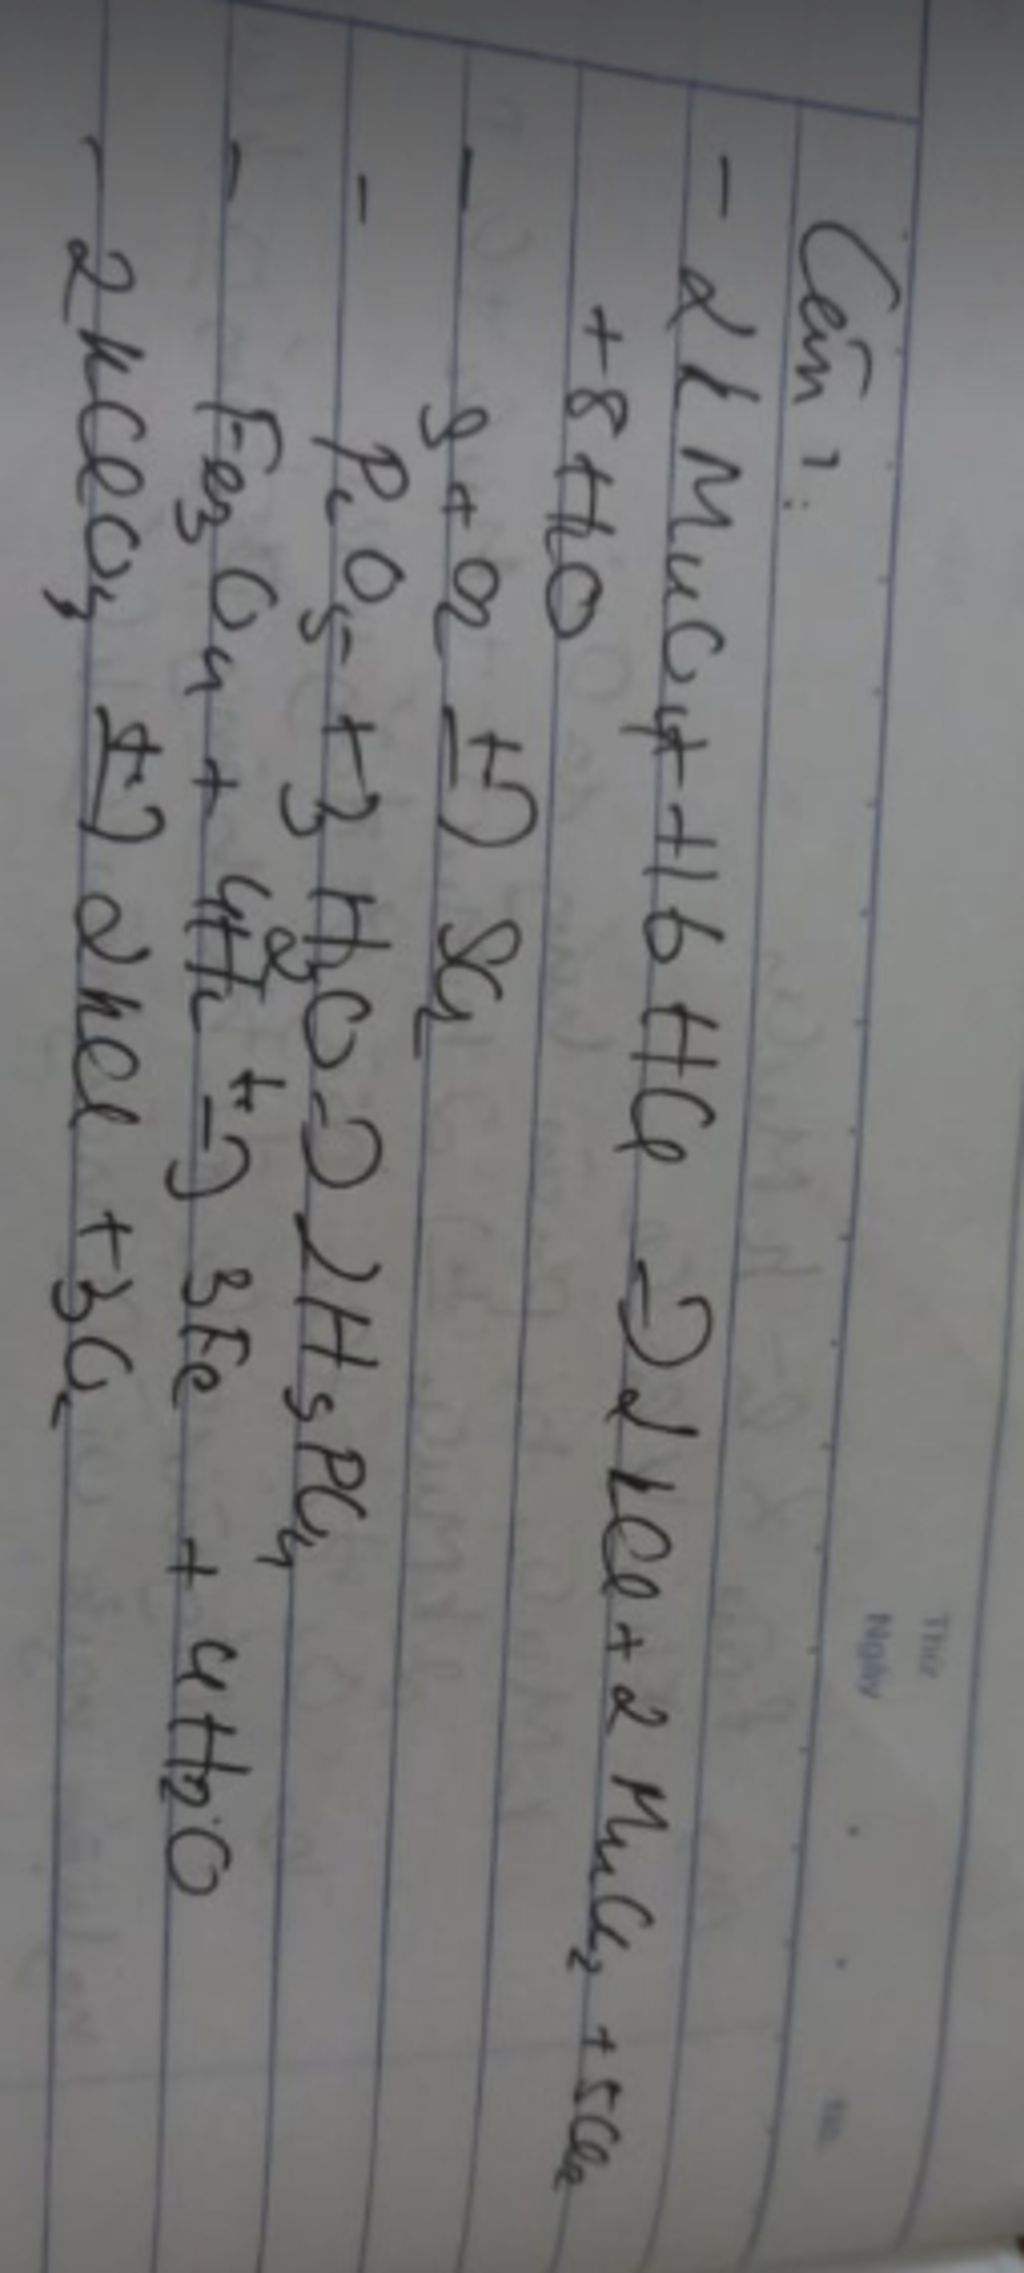 Thứ
Ngày
Câu 1:
- 2KMnO4 + 16HCl → 2KCl + 2MnCl2 + 5Cl2
+ 8H2O
- S + O2 t→ SO2
- P2O5 + 3H2O → 2H3PO4
- Fe3O4 + 4H2 t→ 3Fe + 4H2O
- 2KClO3 t→ 2KCl + 3O2